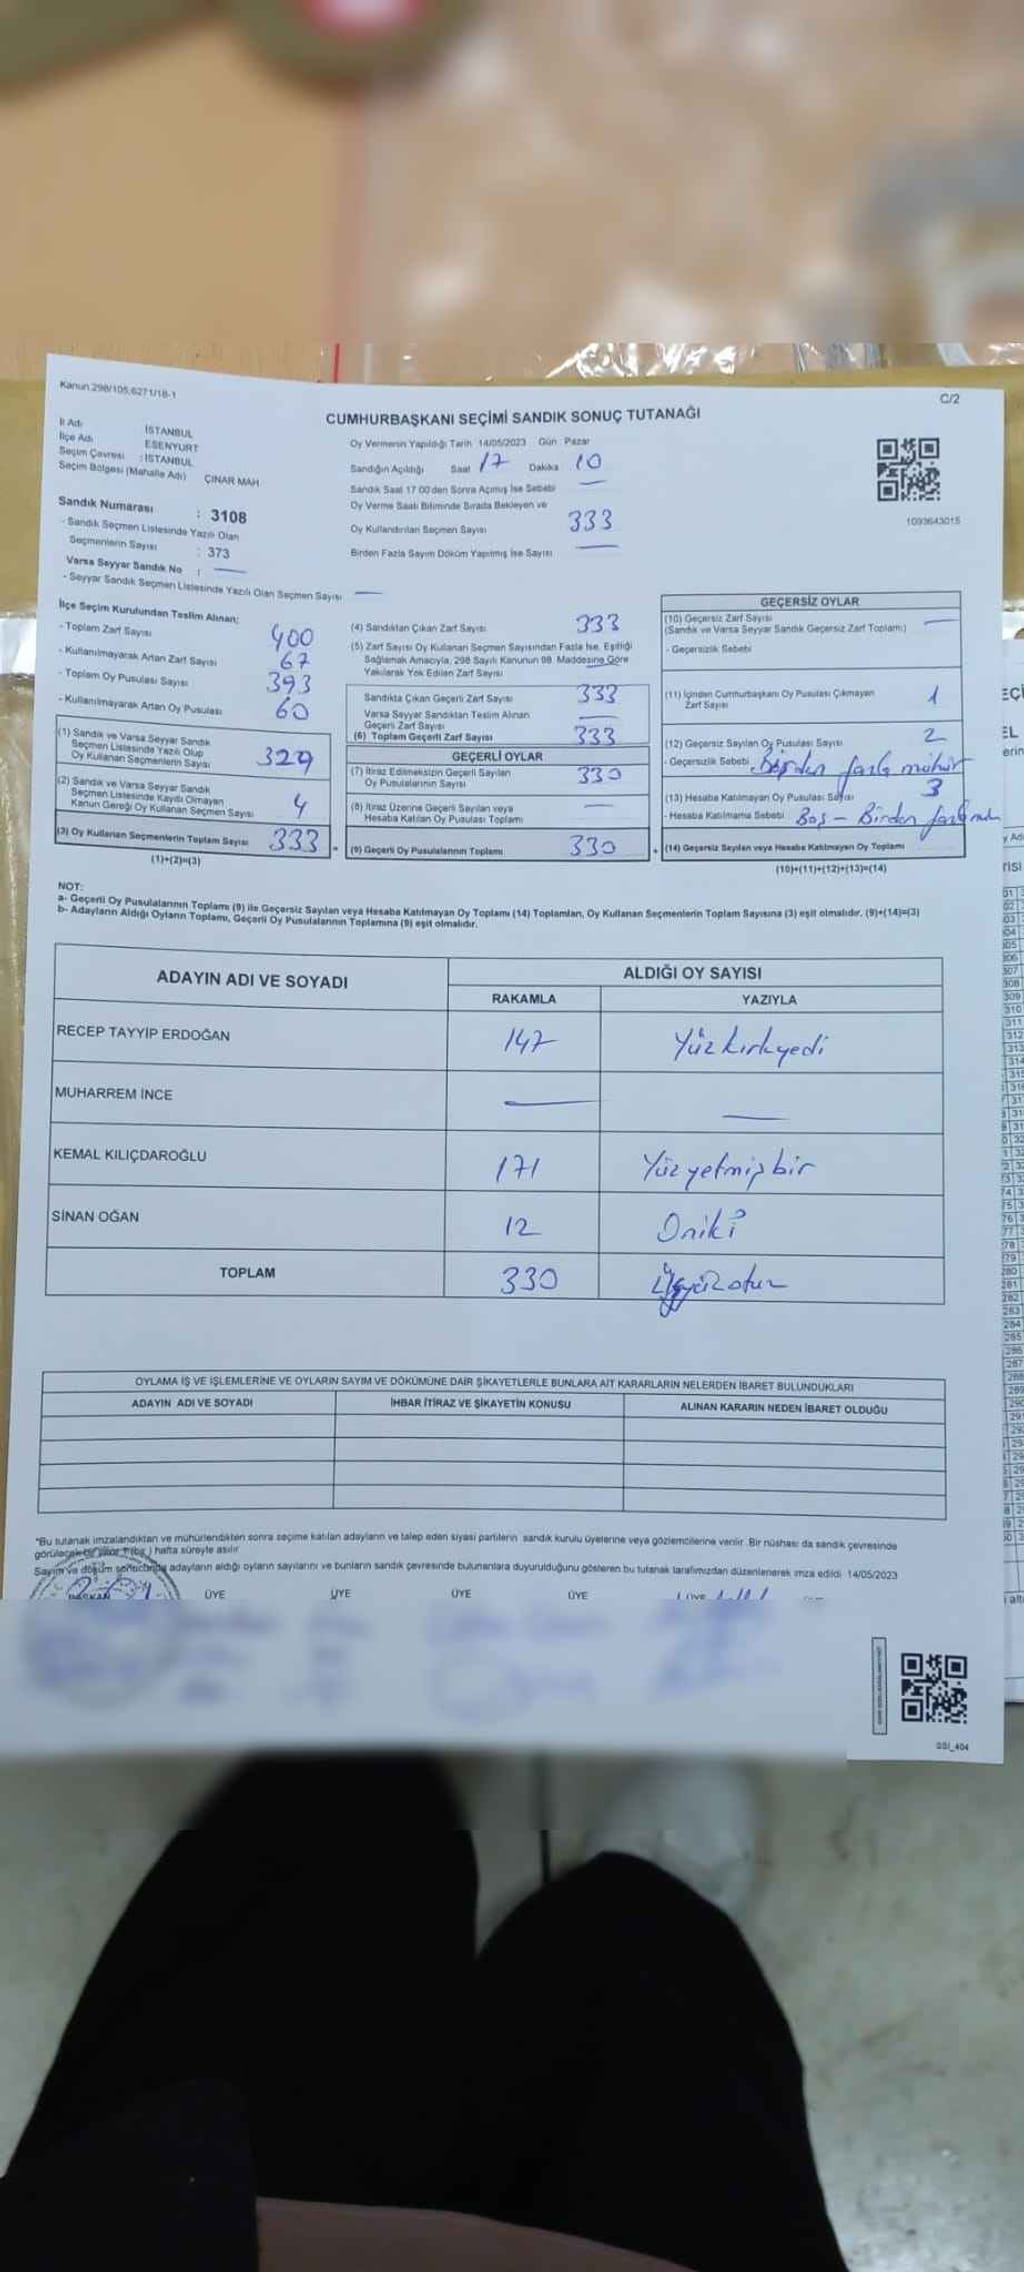 Kanun 298/105,6271/18-1
C/2
CUMHURBAŞKANI SEÇİMİ SANDIK SONUÇ TUTANAĞI
İl Adı İSTANBUL
İlçe Adı ESENYURT
Seçim Çevresi : İSTANBUL
Seçim Bölgesi (Mahalle Adı) ÇINAR MAH.
Sandık Numarası : 3108
- Sandık Seçmen Listesinde Yazılı Olan
Seçmenlerin Sayısı : 373
Varsa Seyyar Sandık No : —
- Seyyar Sandık Seçmen Listesinde Yazılı Olan Seçmen Sayısı —
Oy Vermenin Yapıldığı Tarih 14/05/2023 Gün Pazar
Sandığın Açıldığı Saat 17 Dakika 10
Sandık Saat 17 00'den Sonra Açmış İse Sebebi —
Oy Verme Saati Bitiminde Sırada Bekleyen ve
Oy Kullandırılan Seçmen Sayısı 333
Birden Fazla Sayım Döküm Yapılmış İse Sayısı —
1093643015
İlçe Seçim Kurulundan Teslim Alınan;
- Toplam Zarf Sayısı 400
- Kullanılmayarak Artan Zarf Sayısı 67
- Toplam Oy Pusulası Sayısı 393
- Kullanılmayarak Artan Oy Pusulası 60
(1) Sandık ve Varsa Seyyar Sandık
Seçmen Listesinde Yazılı Olup
Oy Kullanan Seçmenlerin Sayısı 329
(2) Sandık ve Varsa Seyyar Sandık
Seçmen Listesinde Kayıtlı Olmayan
Kanun Gereği Oy Kullanan Seçmen Sayısı 4
(3) Oy Kullanan Seçmenlerin Toplam Sayısı 333
(1)+(2)=(3)
(4) Sandıktan Çıkan Zarf Sayısı 333
(5) Zarf Sayısı Oy Kullanan Seçmen Sayısından Fazla İse, Eşitliği
Sağlamak Amacıyla, 298 Sayılı Kanunun 98. Maddesine Göre
Yakılarak Yok Edilen Zarf Sayısı
Sandıkta Çıkan Geçerli Zarf Sayısı 333
Varsa Seyyar Sandıktan Teslim Alınan
Geçerli Zarf Sayısı —
(6) Toplam Geçerli Zarf Sayısı 333
GEÇERLİ OYLAR
(7) İtiraz Edilmeksizin Geçerli Sayılan
Oy Pusulalarının Sayısı 330
(8) İtiraz Üzerine Geçerli Sayılan veya
Hesaba Katılan Oy Pusulası Toplamı —
= (9) Geçerli Oy Pusulalarının Toplamı 330
GEÇERSİZ OYLAR
(10) Geçersiz Zarf Sayısı —
(Sandık ve Varsa Seyyar Sandık Geçersiz Zarf Toplamı)
- Geçersizlik Sebebi
(11) İçinden Cumhurbaşkanı Oy Pusulası Çıkmayan
Zarf Sayısı 1
(12) Geçersiz Sayılan Oy Pusulası Sayısı 2
- Geçersizlik Sebebi Birden fazla mühür
(13) Hesaba Katılmayan Oy Pusulası Sayısı 3
- Hesaba Katılmama Sebebi Boş - Birden fazla
+ (14) Geçersiz Sayılan veya Hesaba Katılmayan Oy Toplamı
(10)+(11)+(12)+(13)=(14)
NOT:
a- Geçerli Oy Pusulalarının Toplamı (9) ile Geçersiz Sayılan veya Hesaba Katılmayan Oy Toplamı (14) Toplamları, Oy Kullanan Seçmenlerin Toplam Sayısına (3) eşit olmalıdır. (9)+(14)=(3)
b- Adayların Aldığı Oyların Toplamı, Geçerli Oy Pusulalarının Toplamına (9) eşit olmalıdır.
ADAYIN ADI VE SOYADI ALDIĞI OY SAYISI
RAKAMLA YAZIYLA
RECEP TAYYİP ERDOĞAN 147 Yüzkırkyedi
MUHARREM İNCE — —
KEMAL KILIÇDAROĞLU 171 Yüzyetmişbir
SİNAN OĞAN 12 Oniki
TOPLAM 330 Üçyüzotuz
OYLAMA İŞ VE İŞLEMLERİNE VE OYLARIN SAYIM VE DÖKÜMÜNE DAİR ŞİKAYETLERLE BUNLARA AİT KARARLARIN NELERDEN İBARET BULUNDUKLARI
ADAYIN ADI VE SOYADI İHBAR İTİRAZ VE ŞİKAYETİN KONUSU ALINAN KARARIN NEDEN İBARET OLDUĞU
*Bu tutanak imzalandıktan ve mühürlendikten sonra seçime katılan adayların ve talep eden siyasi partilerin sandık kurulu üyelerine veya gözlemcilerine verilir. Bir nüshası da sandık çevresinde
görülecek bir yere 1 (bir) hafta süreyle asılır
Sayım ve döküm sonucunda adayların aldığı oyların sayılarını ve bunların sandık çevresinde bulunanlara duyurulduğunu gösteren bu tutanak tarafımızdan düzenlenerek imza edildi 14/05/2023
BAŞKAN ÜYE ÜYE ÜYE ÜYE ÜYE